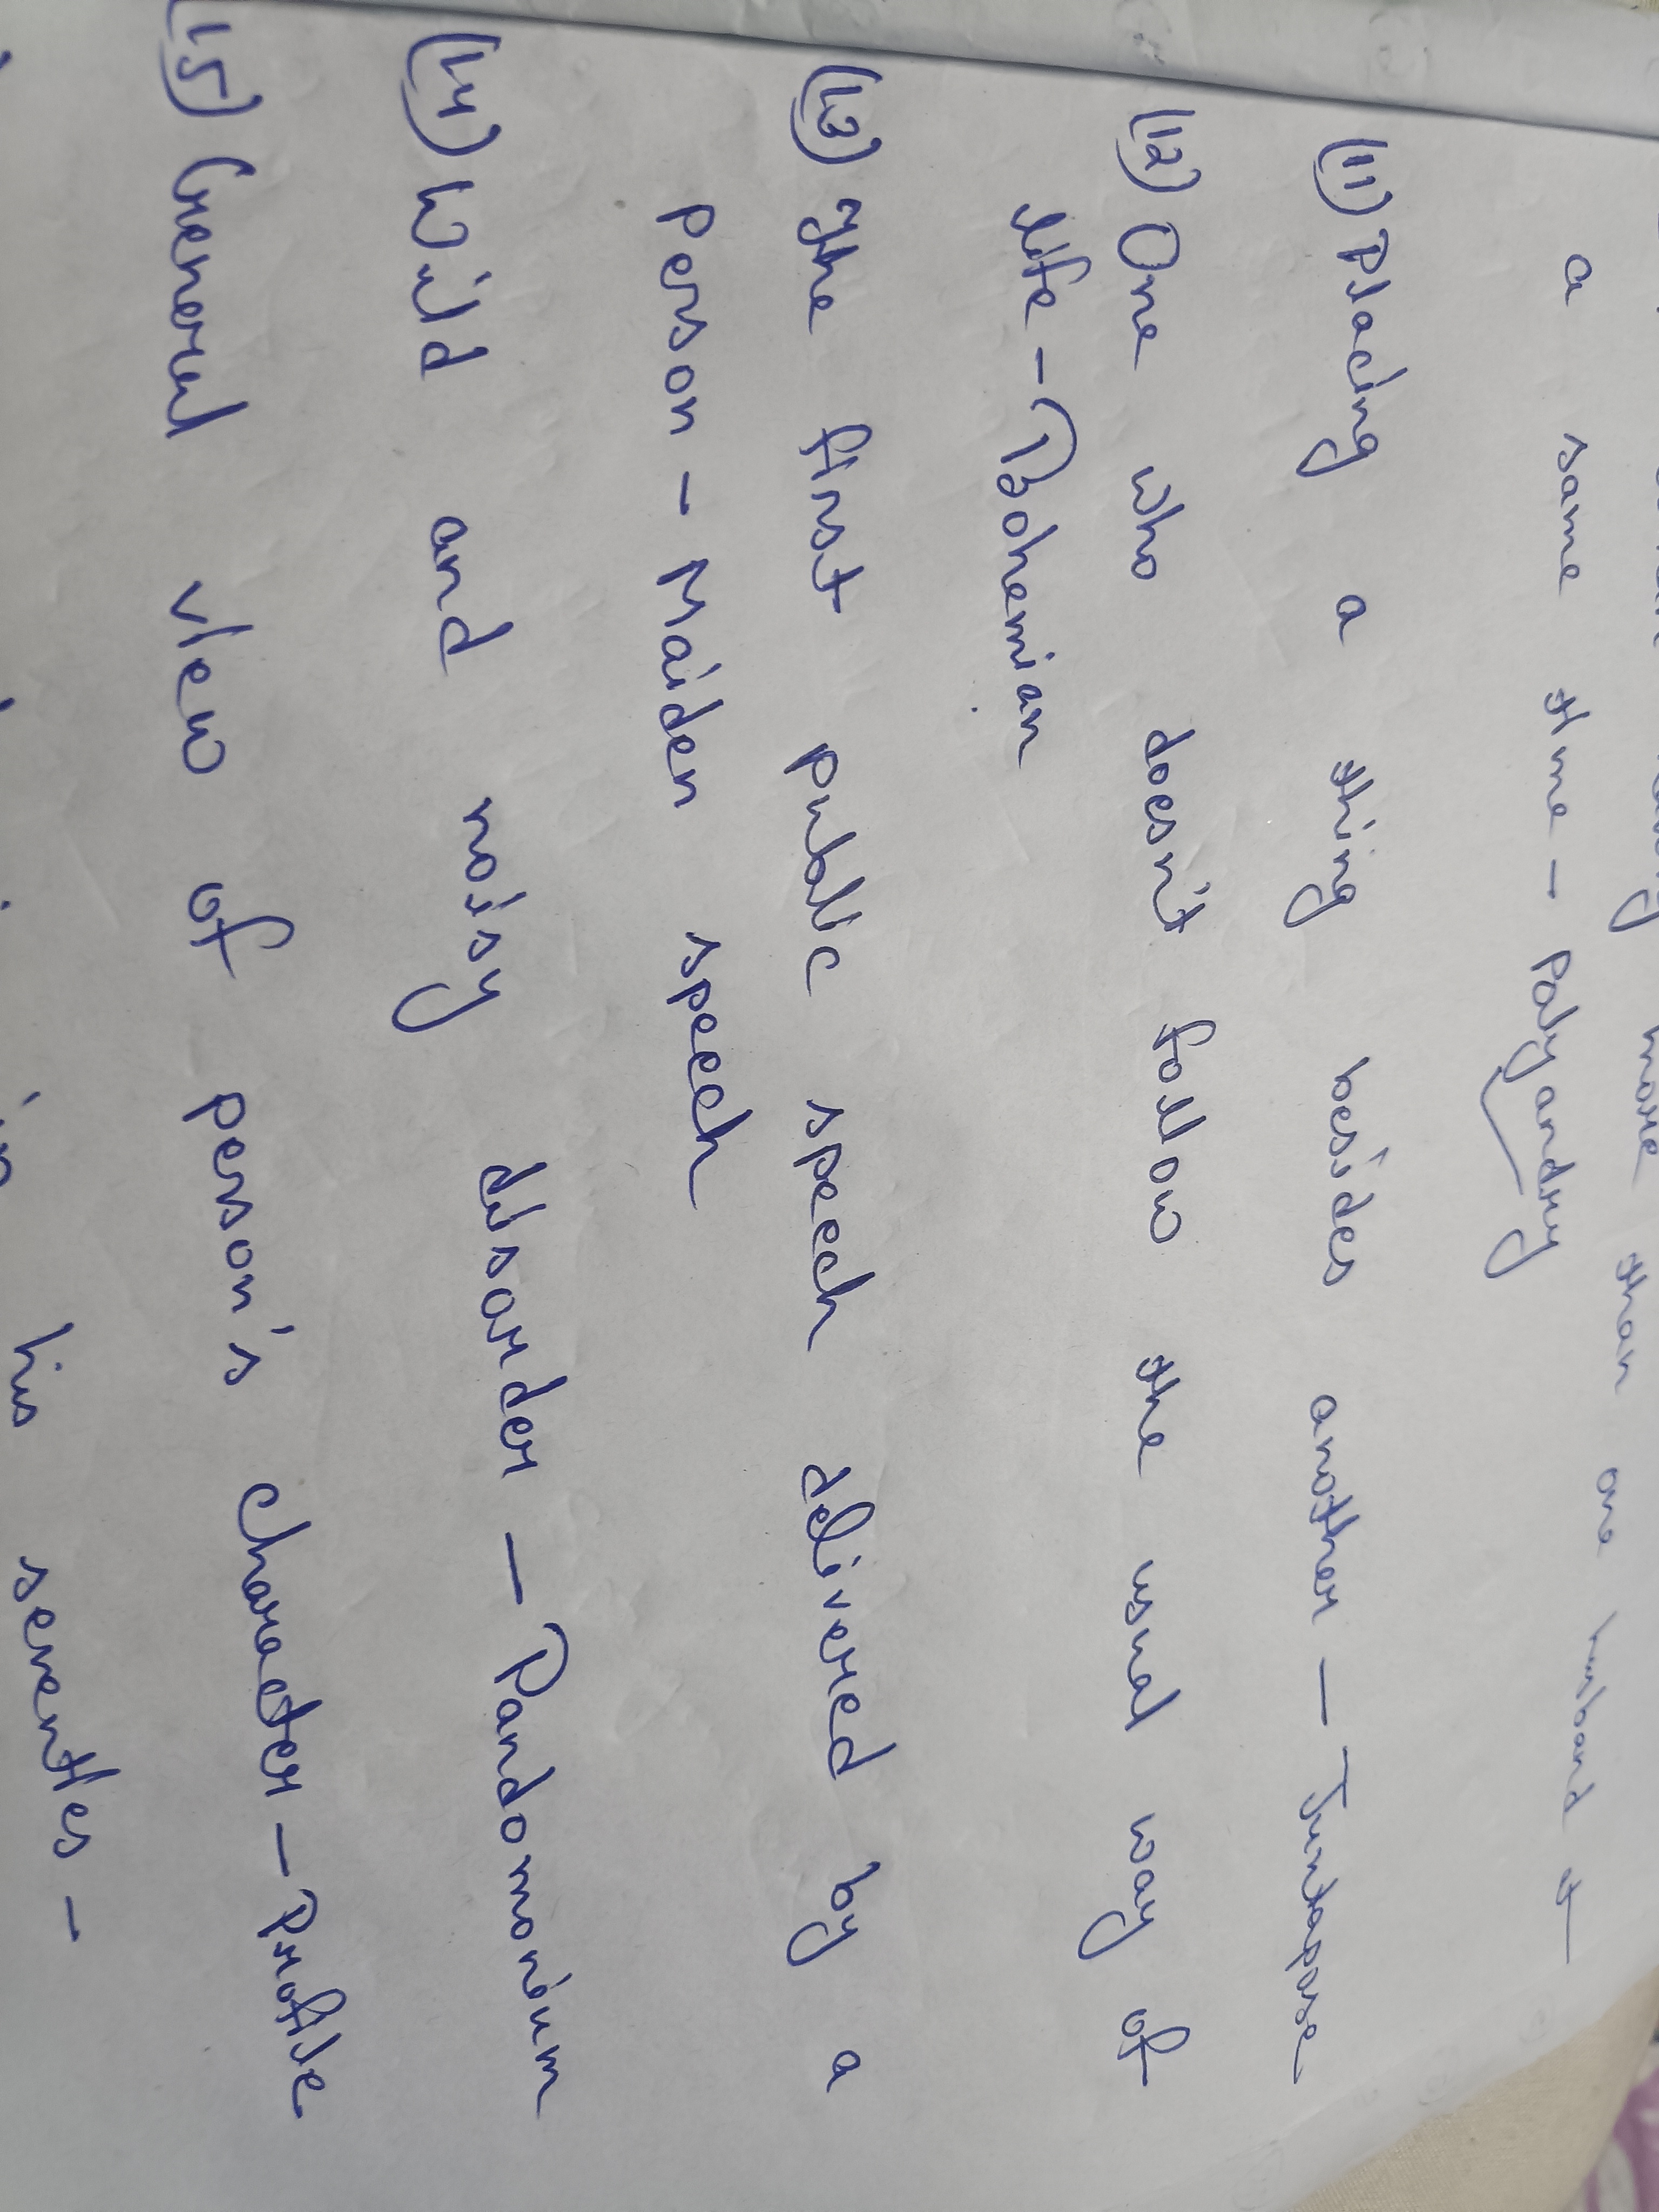 more than one husband at
a same time - Polyandry
(11) Placing a thing besides another - Juxtapose
(12) One who doesn't follow the usual way of
life - Bohemian
(13) The first public speech delivered by a
person - Maiden speech
(14) Wild and noisy disorder - Pandomonium
(15) General view of person's character - Profile
in his seventies -